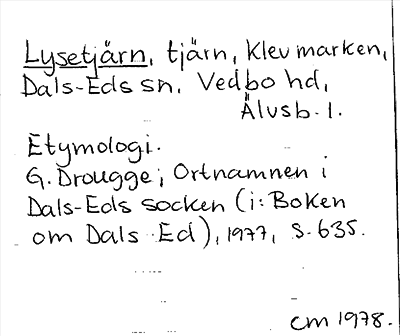 Lysetjärn, tjärn, Klevmarken,
Dals-Eds sn, Vedbo hd,
Älvsb. l.
Etymologi.
G. Drougge; Ortnamnen i
Dals-Eds socken (i: Boken
om Dals Ed), 1977, s. 635.
cm 1978.